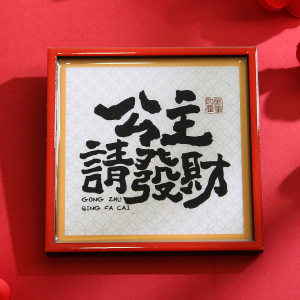 公主
請發財
GONG ZHU
QING FA CAI